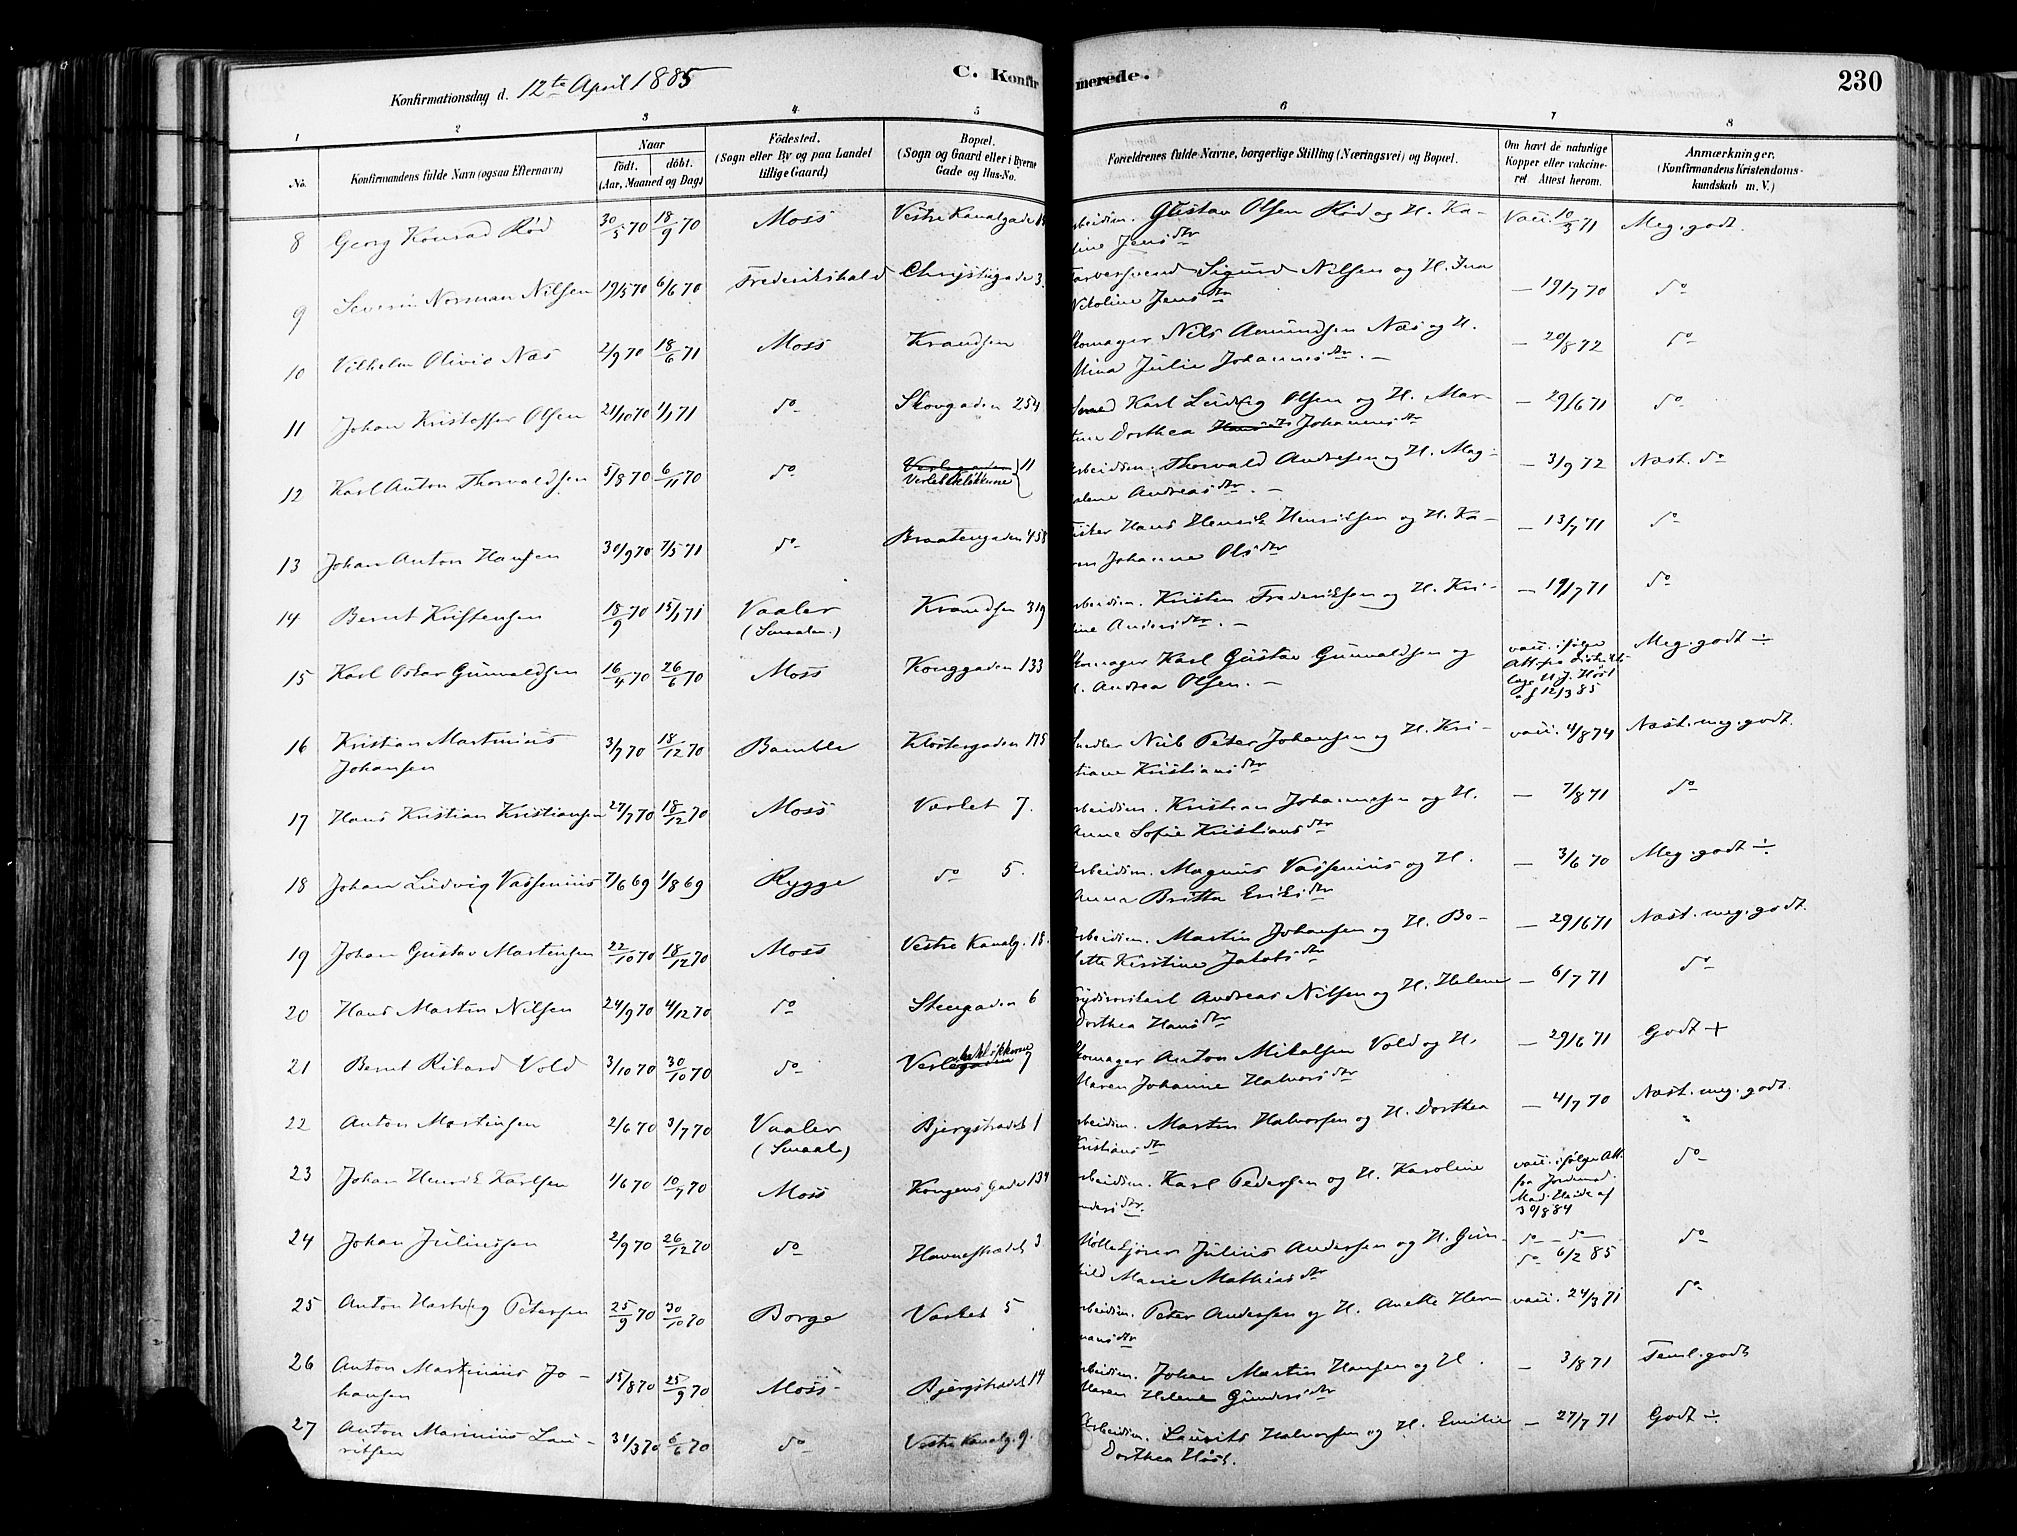 C. Konfirmerede.
230
Konfirmationsdag d. 12te April 1885
1 2 3 4 5 6 7 8
No. Konfirmandens fulde Navn (ogsaa Efternavn) Naar födt. döbt. (Aar, Maaned og Dag) Födested. (Sogn eller By og paa Landet tillige Gaard) Bopæl. (Sogn og Gaard eller i Byerne Gade og Hus-No. Forældrenes fulde Navne, borgerlige Stilling (Næringsvei) og Bopæl. Om havt de naturlige Kopper eller vakcineret Attest herom. Anmærkninger. (Konfirmandens Kristendomskundskab m. V.)
8 Georg Konrad Rød 30/5 70 18/9 70 Moss Vestre Kanalgade Gustav Olsen Rød og H. Ka-
line Jensdtr Vacc. 10/3 71 Meg. godt.
9 Severin Norman Nilsen 19/5 70 6/6 70 Frederikshald Christiigade 3. Sigurd Nilsen og H. Ina
Nikoline Jensdtr — 19/7 70 do
10 Vilhelm Olivio Næs 2/9 70 18/6 71 Moss Krandsen Nils Amundsen Næs og H.
Mina Julie Johannesdtr. — — 20/8 72 do
11 Johan Kristoffer Olsen 21/10 70 1/1 71 do Skovgaden 254 Karl Ludvig Olsen og H. Mar-
Dorthea Johannesdtr — 29/6 71 do
12 Karl Anton Thorvaldsen 5/8 70 6/11 70 do 11 Thorvald Andresen og H. Mag-
Andreasdtr. — — 3/9 72 Næst. do
13 Johan Anton Hansen 30/9 70 7/5 71 do Braatengaden 458 Hans Henrik Henriksen og H. Ka-
Johanne Olsdtr — 13/7 71 do
14 Bernt Kristensen 18/9 70 15/1 71 Vaaler
(Smaalen.) Krandsen 319 Kristen Frederiksen og H. Kri-
Andersdtr. — — 19/7 71 do
15 Karl Oskar Gunvaldsen 16/4 70 26/6 70 Moss Konggaden 133 Karl Gustav Gunvaldsen og
Andrea Olsen. — vacc. ifølge
Att. fra Distrikts-
læge H. J. Høst
af 12/3 85 Meg. godt ÷
16 Kristian Martinius
Johansen 3/7 70 18/12 70 Bamble Klostergaden 175 Nils Peter Johansen og H. Kri-
stiane Kristiansdtr vacc. 4/8 74 Næst. meg. godt.
17 Hans Kristian Kristiansen 27/7 70 18/12 70 Moss Værlet 7. Kristian Johannesen og H.
Anne Sofie Kristiansdtr — 7/8 71 do
18 Johan Ludvig Vassenius 7/6 69 1/8 69 Rygge do 5. Magnus Vassenius og H.
Anna Britta Eriksdtr — 3/6 70 Meg. godt ÷
19 Johan Gustav Martinsen 22/10 70 18/12 70 Moss Vestre Kanalg. 18. Martin Johansen og H. Bo-
lette Kirstine Jakobsdtr — 29/6 71 Næst. meg. godt.
20 Hans Martin Nilsen 24/9 70 4/12 70 do Steengaden 6 Andreas Nilsen og H. Helene
Dorthea Hansdtr — 6/7 71 do
21 Bernt Rikard Vold 3/10 70 30/10 70 do 7 Anton Mikalsen Vold og H.
Maren Johanne Halvorsdtr — 29/6 71 Godt +
22 Anton Martinsen 2/6 70 3/7 70 Vaaler
(Smaal.) Bjergstrædet 1 Martin Halvorsen og H. Dorthea
Kristiansdtr — 4/7 70 Næst. meg. godt.
23 Johan Henrik Karlsen 1/6 70 10/7 70 Moss Kongens Gade 134 Karl Pedersen og H. Karoline
Andersdtr. vacc. ifølge Att.
fra Jordemod.
Mad. Heide af
30/8 84 do
24 Johan Juliussen 2/9 70 26/12 70 do Havnestrædet 3 Julius Andersen og H. Gun-
hild Marie Mathiasdtr do — do —
do 6/2 85 do
25 Anton Hartvig Petersen 25/9 70 30/10 70 Borge Værlet 5 Peter Andersen og H. Anette Herm
ansdtr vacc. 24/3 71 do
26 Anton Martinius Jo-
hansen 15/8 70 25/9 70 Moss Bjergstrædet 14 Johan Martin Hansen og H.
Maren Helene Gundersdtr — 3/8 71 Teml. godt
27 Anton Marinius Lau-
ritsen 31/3 70 6/6 70 do Vestre Kanalg. 9. Arbeidsm. Laurits Halvorsen og H. Emilie
Dorthea Høst. — 27/7 71 Godt ÷